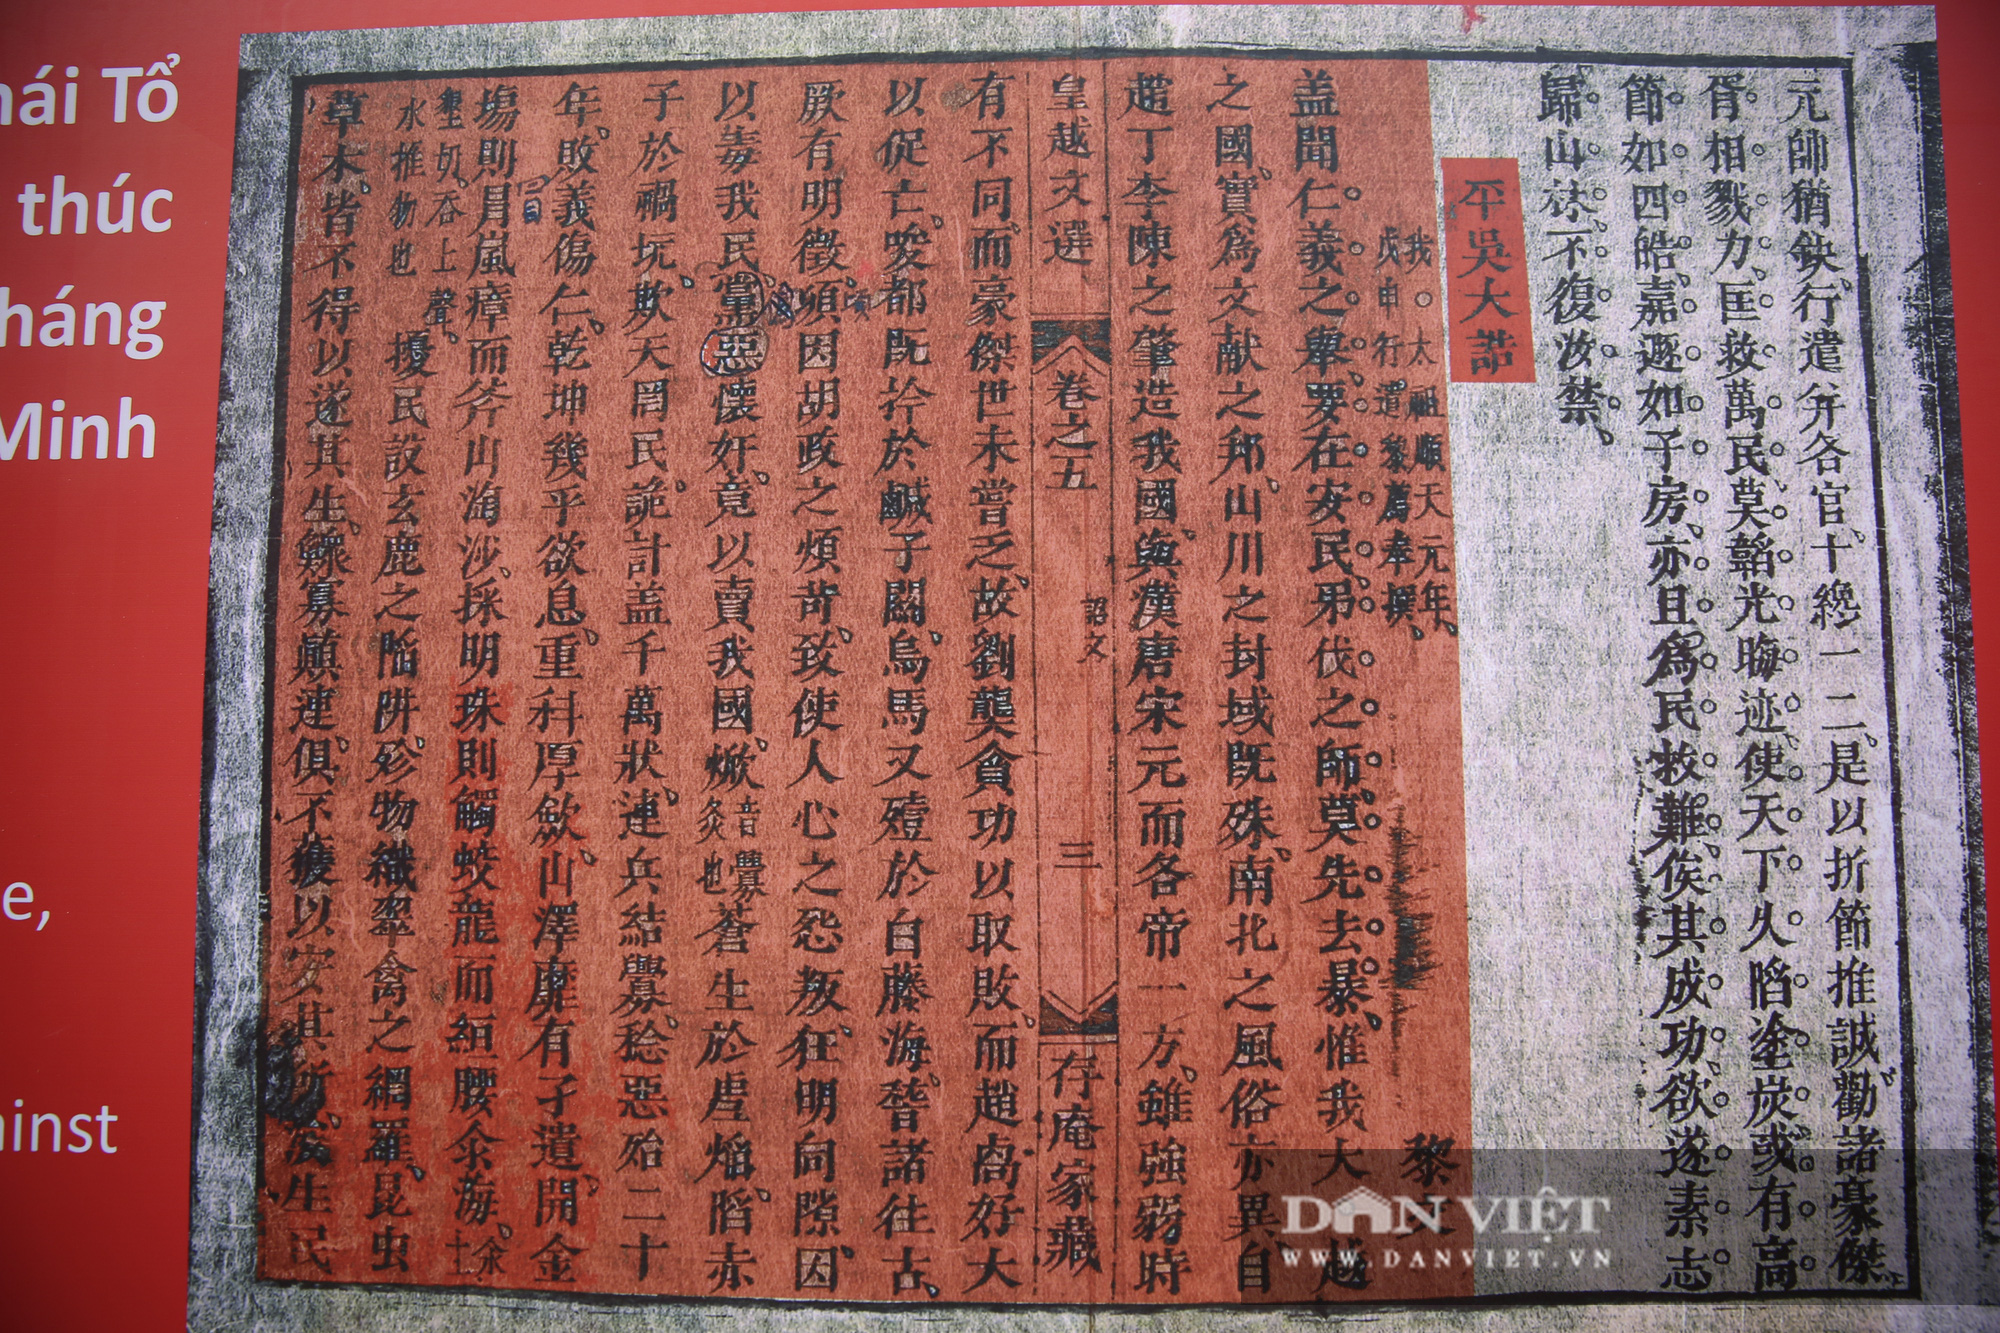 hái Tổ
thúc
háng
Minh
e,
ainst
元師猶缺行遣并各官十纔一二是以折節推誠勸諸豪傑
胥相戮力匡救萬民莫韜光晦迹使天下久陷塗炭或有高
節如四皓嘉遯如子房亦且為民救難俟其成功欲遂素志
歸山林不復汝禁
平吳大誥
我太祖順天元年
戊申行遣黎廌奉撰
蓋聞仁義之舉要在安民弔伐之師莫先去暴惟我大越
之國實為文獻之邦山川之封域既殊南北之風俗亦異自
趙丁李陳之肇造我國與漢唐宋元而各帝一方雖強弱時
皇越文選 卷之五 詔文 三 存庵家藏
有不同而豪傑世未嘗乏故劉龔貪功以取敗而趙卨好大
以促亡唆都既於鹹子關烏馬又殪於白藤海諸往古
厥有明徵頃因胡政之煩苛致使人心之怨叛狂明向隙因
以毒我民黨惡懷奸竟以賣我國焮
音釁
炙也
蒼生於虐焰陷赤
子於禍坑欺天罔民詭計蓋千萬狀連兵結釁稔惡殆二十
年敗義傷仁乾坤幾乎欲息重科厚歛山澤靡有孑遺開金
塲則冒嵐瘴而斧山淘沙採明珠則觸蛟龍而絙腰汆海
上聲
水推物也
擾民設玄鹿之陷阱殄物織翠禽之網羅昆虫
草木皆不得以遂其生鰥寡顛連俱不獲以安其所浚生民
DÂN VIỆT
WWW.DANVIET.VN